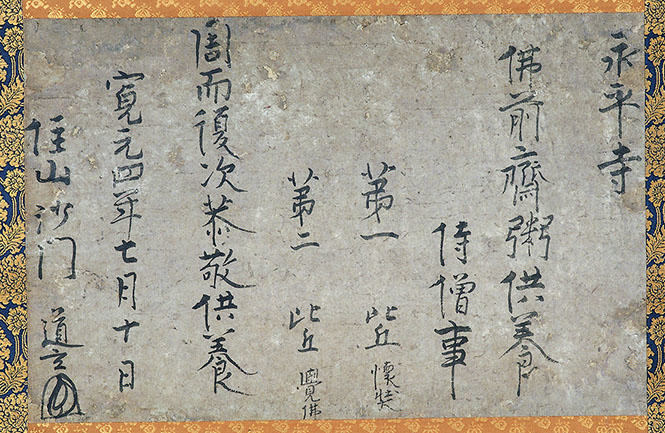 永平寺
佛前齋粥供養
侍僧事
第一 比丘 懷奘
第二 比丘 覺佛
周而復次恭敬供養
寛元四年七月十日
住山沙門 道元